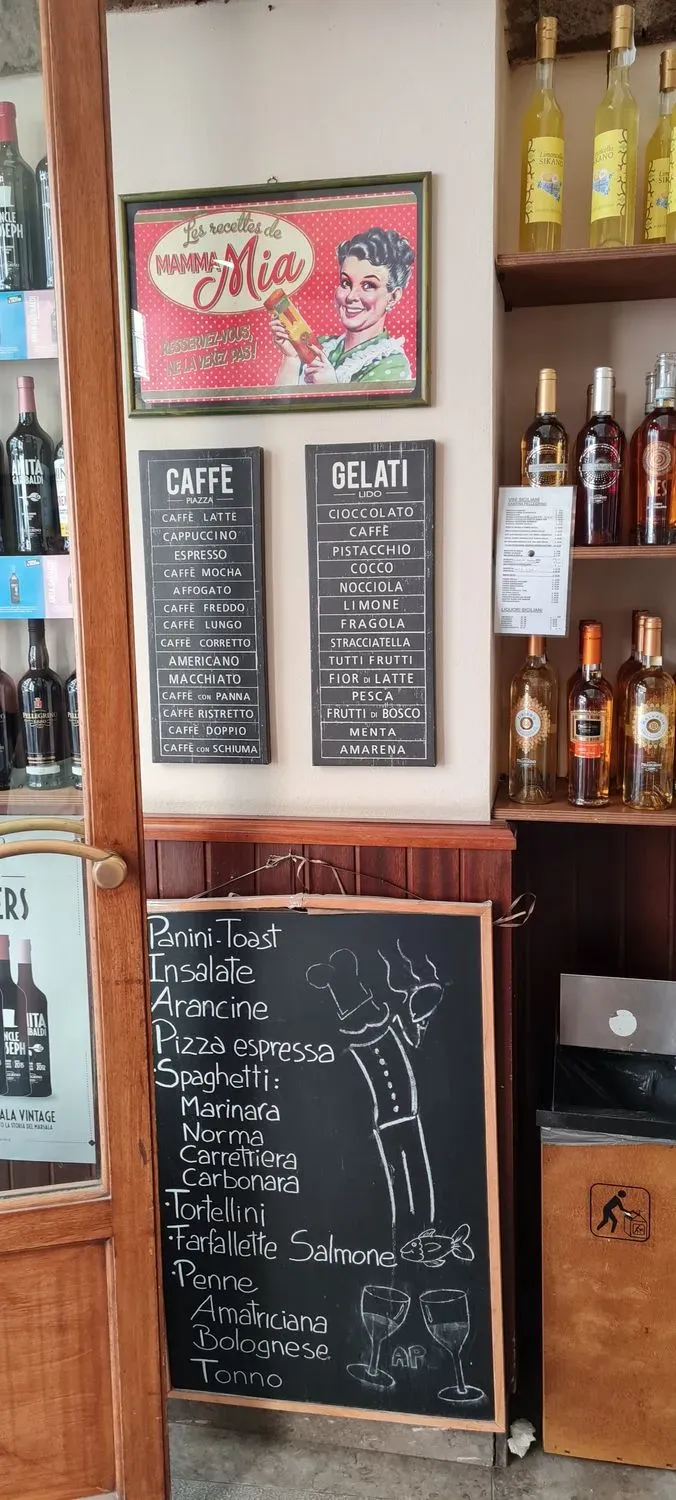 Les recettes de
MAMMA Mia
RESSERVEZ-VOUS,
NE LA VEXEZ PAS!
CAFFÈ
PIAZZA
CAFFÈ LATTE
CAPPUCCINO
ESPRESSO
CAFFÈ MOCHA
AFFOGATO
CAFFÈ FREDDO
CAFFÈ LUNGO
CAFFÈ CORRETTO
AMERICANO
MACCHIATO
CAFFÈ CON PANNA
CAFFÈ RISTRETTO
CAFFÈ DOPPIO
CAFFÈ CON SCHIUMA
GELATI
LIDO
CIOCCOLATO
CAFFÈ
PISTACCHIO
COCCO
NOCCIOLA
LIMONE
FRAGOLA
STRACCIATELLA
TUTTI FRUTTI
FIOR DI LATTE
PESCA
FRUTTI DI BOSCO
MENTA
AMARENA
Panini-Toast
Insalate
Arancine
Pizza espressa
Spaghetti:
Marinara
Norma
Carrettiera
Carbonara
Tortellini
Farfallette Salmone
Penne
Amatriciana
Bolognese
Tonno
AP
Limoncello
SIKANO
SIKANO
VINI SICILIANI
LIQUORI SICILIANI
NCLE
OSEPH
ANITA
GARIBALDI
PELLEGRINO
ERS
NCLE
SEPH
NITA
BALDI
ALA VINTAGE
O LA STORIA DEL MARSALA